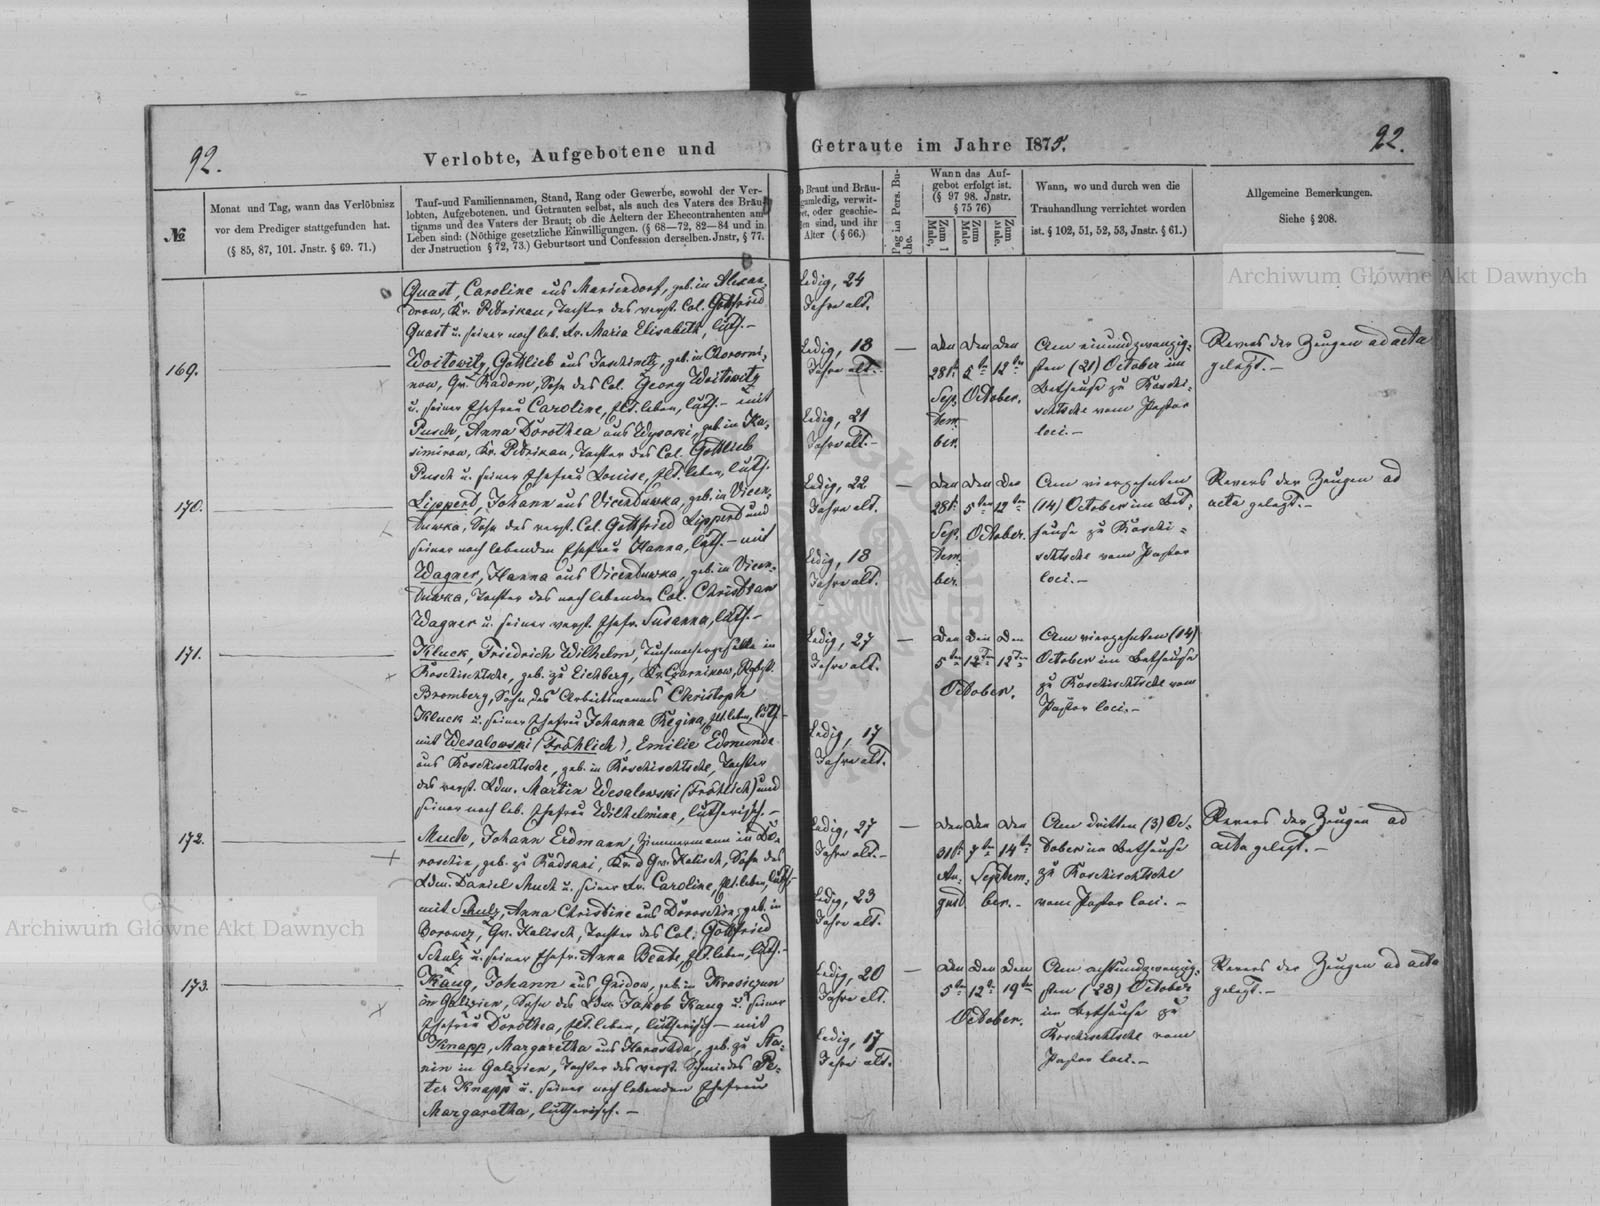 92.
Verlobte, Aufgebotene und
Getraute im Jahre 1875.
92.
№
Monat und Tag, wann das Verlöbnisz
vor dem Prediger stattgefunden hat.
(§ 85, 87, 101. Jnstr. § 69. 71.)
Tauf-und Familiennamen, Stand, Rang oder Gewerbe, sowohl der Ver-
lobten, Aufgebotenen. und Getrauten selbst, als auch des Vaters des Bräu-
tigams und des Vaters der Braut; ob die Aeltern der Ehecontrahenten am
Leben sind: (Nöthige gesetzliche Einwilligungen. (§ 68—72, 82—84 und in
der Jnstruction § 72, 73.) Geburtsort und Confession derselben. Jnstr, § 77.
b Braut und Bräu-
gamledig, verwit-
et, oder geschie-
en sind, und ihr
Alter ( § 66.)
Pag in Pers. Bu-
che.
Wann das Auf-
gebot erfolgt ist.
(§ 97 98. Jnstr.
§ 75 76)
Zum 1
Male,
Zum
Male
Zum
Male.
Wann, wo und durch wen die
Trauhandlung verrichtet worden
ist. § 102, 51, 52, 53, Jnstr. § 61.)
Allgemeine Bemerkungen.
Siehe § 208.
Quast, Caroline aus Mariendorf, geb. in Alexan-
drow, Kr. Petrikau, Tochter des verst. Col. Gottfried
Quast u. seiner noch leb. Fr. Maria Elisabeth, luth. —
Ledig, 24
Jahre alt.
169.
Woitowitz, Gottlieb aus Josefinetz, geb. in
now, Gv. Radom, Sohn des Col. Georg Woitowitz
u. seiner Ehefrau Caroline, plt. leben, luth. — mit
Pusch, Anna Dorothea aus Wysoki, geb. in Ka-
simirow, Kr. Petrikau, Tochter des Col. Gottlieb
Pusch u. seiner Ehefrau Louise, plt. leben, luth.
Ledig, 18
Jahre alt. —
Ledig, 21
Jahre alt. —
—
den den den
28t. 5te 12ten
Sep. October.
tem-
ber.
Am einundzwanzig-
sten (21) October im
Bethause zu Roschi-
schtsche vom Pastor
loci. —
Revers der Zeugen ad acta
gelegt. —
170.
Lipperd, Johann aus Vicentuwka, geb. in Vicen-
tuwka, Sohn des verst. Col. Gottfried Lipperd und
seiner noch lebenden Ehefrau Hanna, luth. — mit
Wagner, Hanna aus Vicentuwka, geb. in Vicen-
tuwka, Tochter des noch lebenden Col. Christian
Wagner u. seiner verst. Ehefr. Susanna, luth. —
Ledig, 22
Jahre alt.
Ledig, 18
Jahre alt.
—
den den den
28t. 5ten 12ten
Sep. October.
tem-
ber.
Am vierzehnten
(14) October im Bet-
hause zu Roschi-
schtsche vom Pastor
loci. —
Revers der Zeugen ad
acta gelegt. —
171.
Kluck, Friedrich Wilhelm, Tuchmachergeselle in
Roschischtsche, geb. zu Eichberg, Kr. Czarnikow, Rgbzk.
Bromberg, Sohn des Arbeitsmannes Christoph
Kluck u. seiner Ehefrau Johanna Regina, plt. leben, luth. —
mit Wesalowski (Fröhlich), Emilie Edmunde
aus Roschischtsche, geb. in Roschischtsche, Tochter
des verst. Ldm. Martin Wesalowski (Fröhlich) und
seiner noch leb. Ehefrau Wilhelmine, lutherisch. —
Ledig, 27
Jahre alt.
Ledig, 17
Jahre alt.
—
den den den
5ten 12ten 12ten
October.
Am vierzehnten (14)
October im Bethause
zu Roschischtsche vom
Pastor loci. —
172.
Much, Johann Erdmann, Zimmermann in Do-
roschin, geb. zu Radsani, Kr. d Gv. Kalisch, Sohn des
Ldm. Daniel Much u. seiner Fr. Caroline, plt. leben, luth. —
mit Schulz, Anna Christine aus Doroschin, geb. in
Borowez, Gv. Kalisch, Tochter des Col. Gottfried
Schulz u. seiner Ehefr. Anna Beate, plt. leben, luth. —
Ledig, 27
Jahre alt. —
Ledig, 23
Jahre alt.
—
den den den
31t. 7te 14ten
Au- Septem-
gust ber. —
Am dritten (3) Oc-
tober im Bethause
zu Roschischtsche
vom Pastor loci. —
Revers der Zeugen ad
acta gelegt. —
173.
Kaug, Johann aus Gnidow, geb. in Krosiczun
in Galizien, Sohn des Ldm. Jakob Kaug u. seiner
Ehefrau Dorothea, plt. leben, lutherisch — mit
Knapp, Margaretha aus Harastka, geb. zu Ha-
nin in Galizien, Tochter des verst. Schmiedes Pe-
ter Knapp u. seiner noch lebenden Ehefrau
Margaretha, lutherisch. —
Ledig, 20
Jahre alt.
Ledig, 17
Jahre alt.
—
den den den
5te 12te 19ten
October.
Am achtundzwanzig-
sten (28) October
im Bethause zu
Roschischtsche vom
Pastor loci. —
Revers der Zeugen ad acta
gelegt. —
Archiwum Główne Akt Dawnych
Archiwum Główne Akt Dawnych